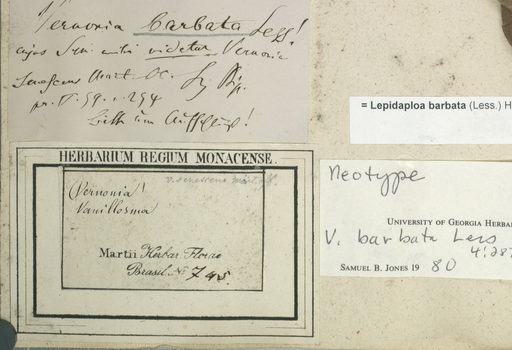 Vernonia barbata Less!
cujus Syn. mihi videtur Vernonia
senescens Mart. DC.
pr. V. 59. n. 294
= Lepidaploa barbata (Less.) H
HERBARIUM REGIUM MONACENSE.
V. senescens Mart.
(Vernonia)
Vanillosma
Martii Herbar. Florae
Brasil. No 745.
Neotype
UNIVERSITY OF GEORGIA HERBA
V. barbata Less
4:287
SAMUEL B. JONES 19 80